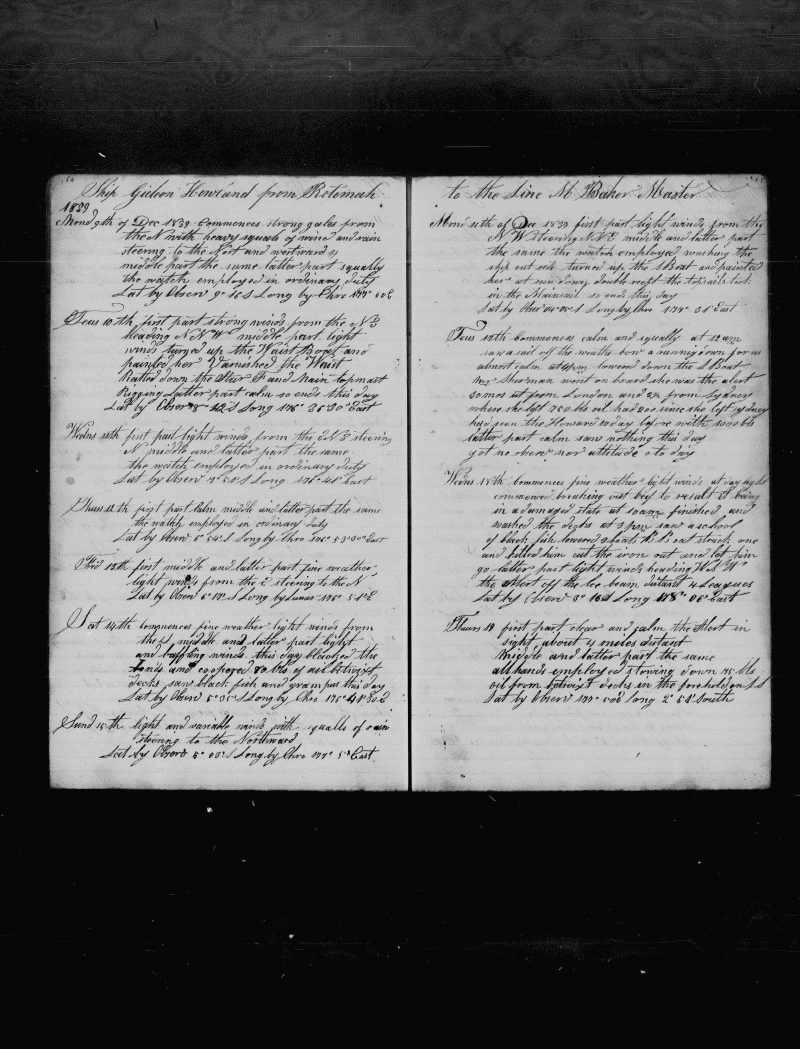 Ship Gideon Howland from Rotomah
1839
Mond 9th of Dec 1839 Commences strong gales from
the N with heavy squals of wind and rain
steering to the Nort and westward
middle part the same latter part squally
the watch employed in ordinary duty
Lat by Observ 9° S Long by Chro 177° E
Teus 10th first part strong winds from the N E
Heading N N W middle part light
winds turned up the Waist Boat and
painted her Varnished the Waist
Ratled down the Star F and Main topmast
Rigging Latter part calm so ends this day
Lat by Obser S Long 176° 35 30 East
Wedns 11th first part light winds from the E N E steering
N middle and latter part the same
the watch employed in ordinary duty
Lat by Observ 7° 51 S Long 176° 41 East
Thurs 12th first part Calm middle and latter part the same
the watch employed in ordinary duty
Lat by Observ 6° 54 S Long by Chro 176° 53 30 East
Frid 13th first middle and latter part fine weather
light winds from the E steering to the N
Lat by Observ 6° S Long by Lunar 176° E
Sat 14th Commences fine weather light winds from
the S middle and latter part light
and baffling winds this day
and coopered 80 bbls of oil betwixt
decks saw black fish and grampus this day
Lat by Observ 5° 35 S Long by Chro 176° 41 30 E
Sund 15th light and variable winds with squalls of rain
steering to the Northward
Lat by Obserd 5° 03 S Long by Chro 177° 5 East
to the Line M Baker Master
Mond 16th of Dec 1839 first part light winds from the
N W Steering N N E middle and latter part
the same the watch employed washing the
ship out side turned up the S Boat and painted
her at sun down double reeft the topsails
in the Mainsail so ends this day
Lat by Obser S Long by Chro 177° 31 East
Teus 17th Commences calm and squally at 12 am
saw a sail off the weather bow a running down for us
almost calm at 4 pm lowered down the S Boat
Mr Sherman went on board she was the alert
30 mos ut from London and 2½ from Sydney
where she left 750 bbls oil had 200 since she left Sydney
had seen the Howard 10 day before with 1000 bbls
latter part calm saw nothing this day
got no obserr nor altitude to day
Wedns 18th Commences fine weather light winds at day light
commenced breaking out beef to resalt it being
in a damaged state at 10 am finished and
washed the decks at 3 pm saw a school
of black fish lowered 3 boats S B boat struck one
and killed him cut the iron out and let him
go latter part light winds heading W S W
the Alert off the lee beam distant 4 Leagues
Lat by Obserr 3° S Long 178° 06 East
Thurs 19 first part clear and calm the Alert in
sight about 7 miles distant
Middle and latter part the same
all hands employed stowing down 75 bbls
oil from betwixt decks in the forehold
Lat by Obserr 177° Long 2° 51 South